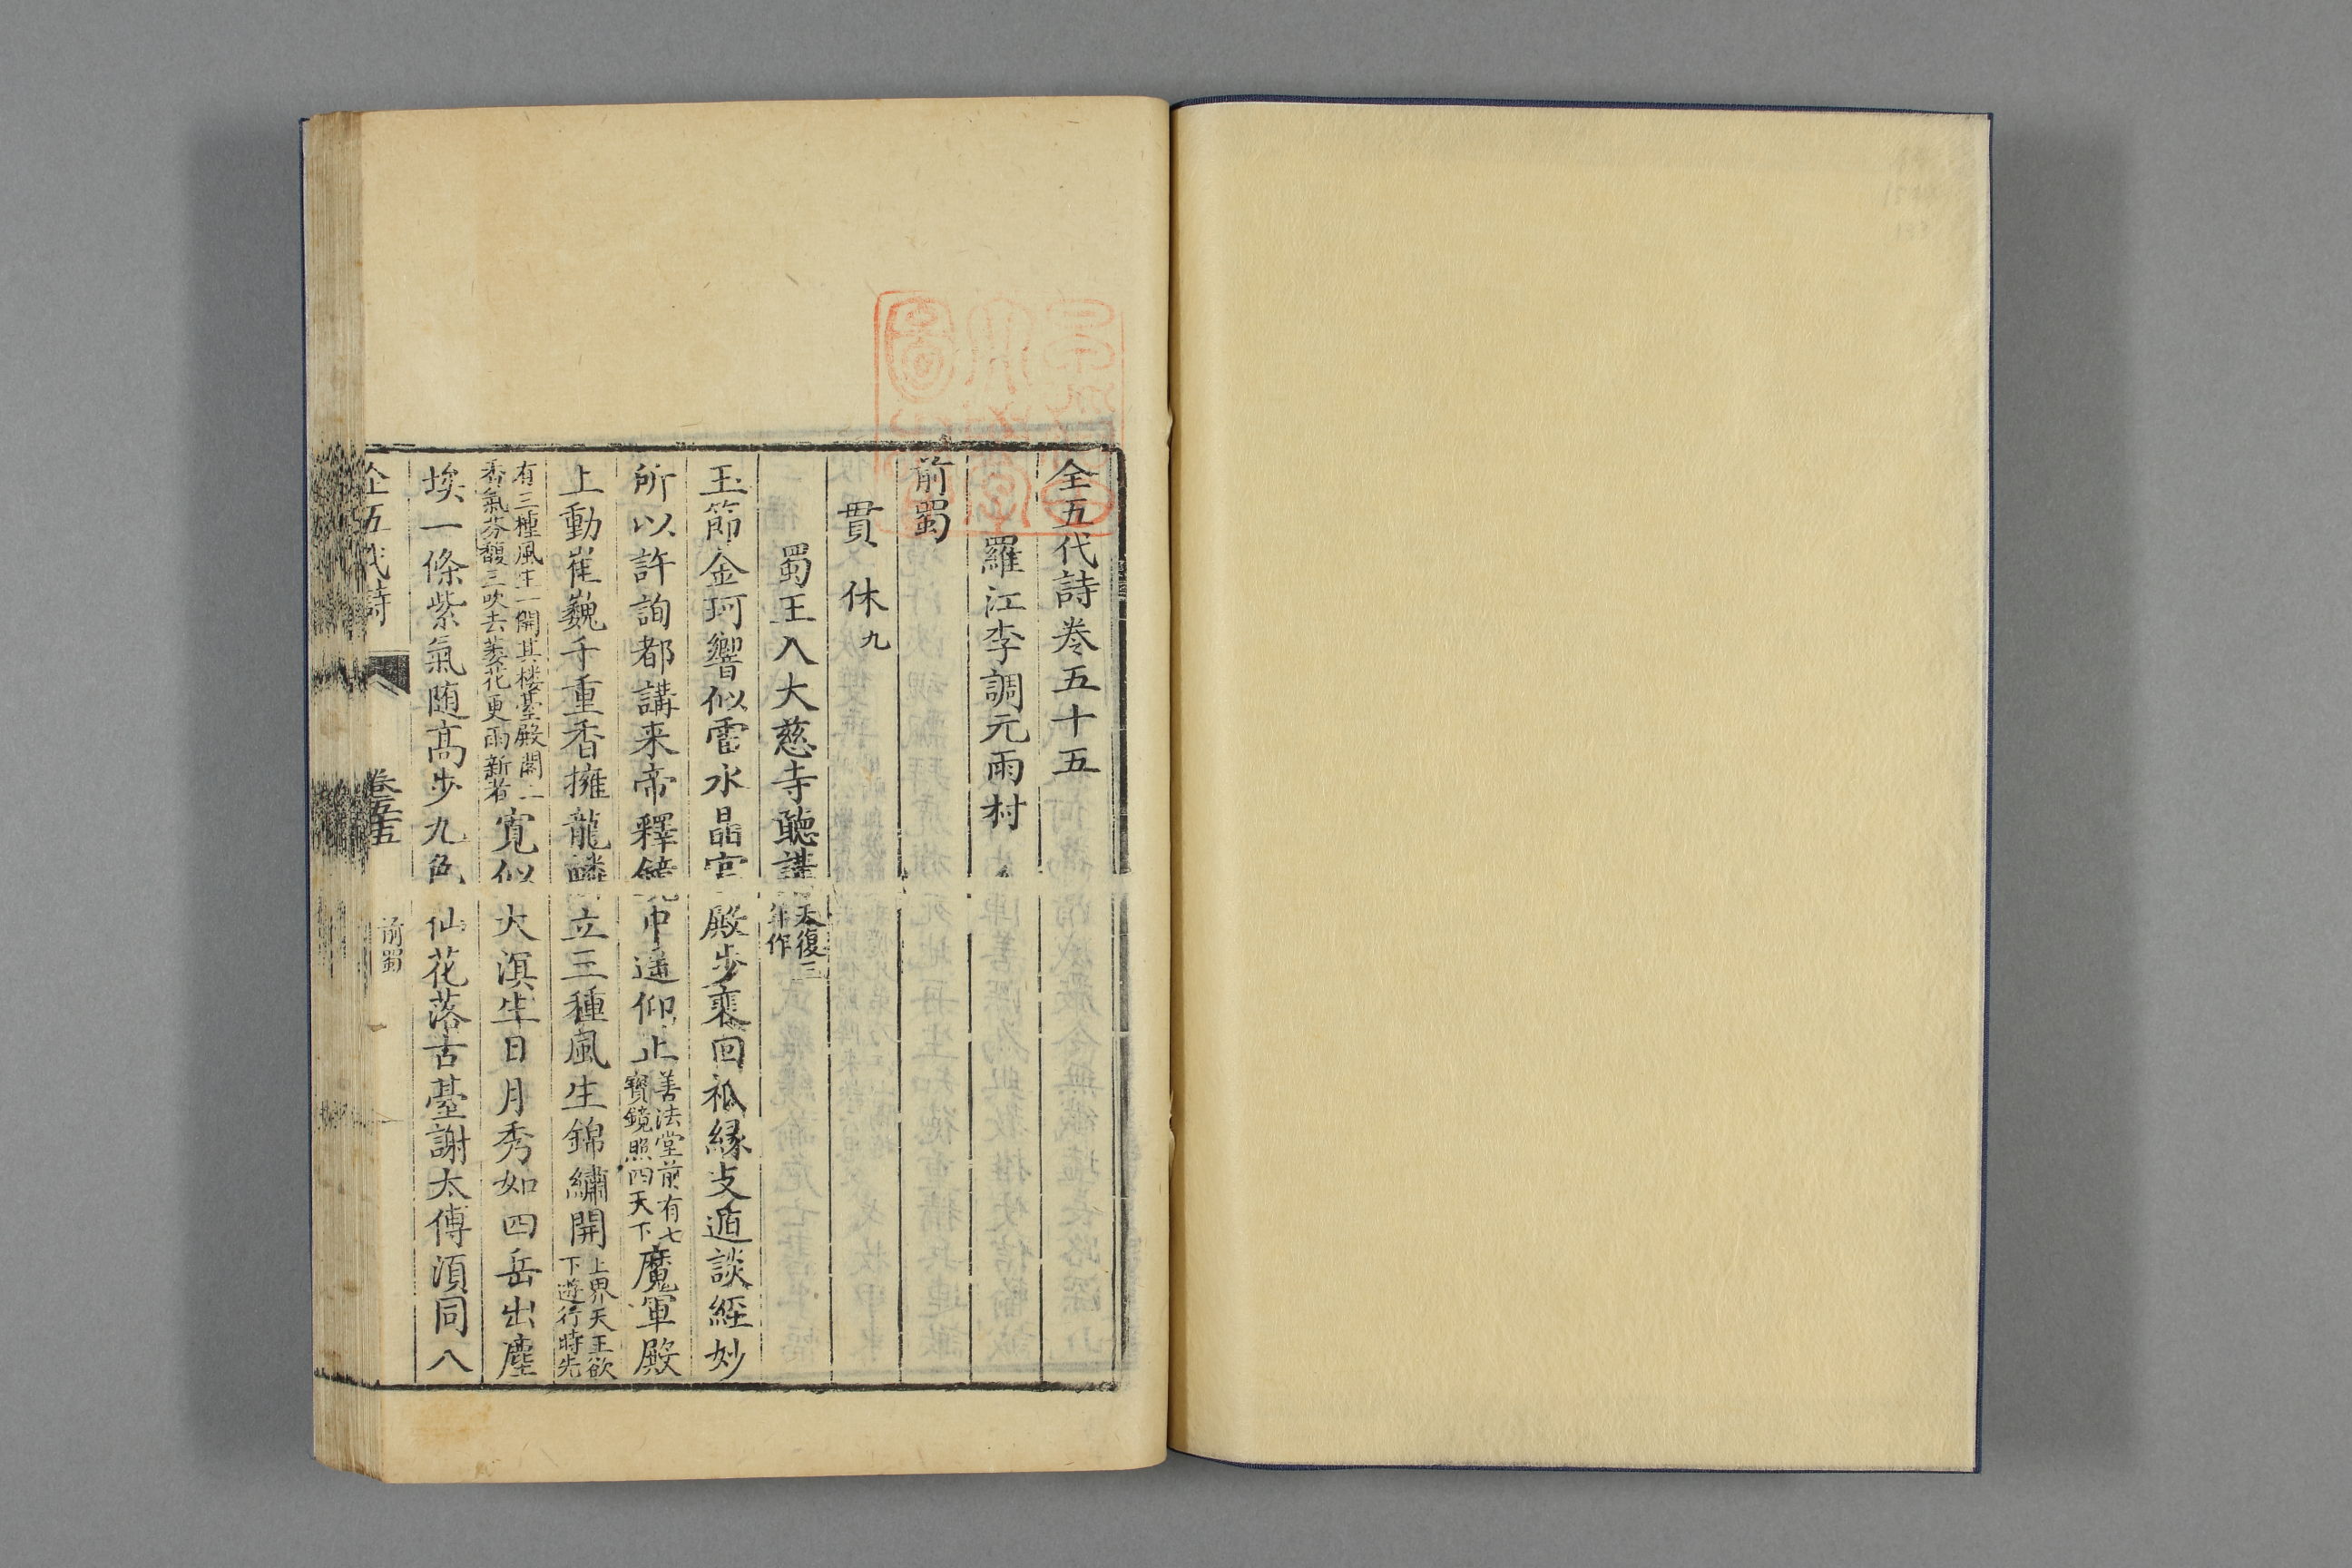 全五代詩卷五十五
羅江李調元雨村
前蜀
貫休九
蜀王入大慈寺聽講天復三年作
玉節金珂響似雷水晶宮殿步裵回祇縁支遁談經妙
所以許詢都講来帝釋鏡中遥仰止善法堂前有七寶鏡照四天下魔軍殿
上動崔巍千重香擁龍鱗立三種風生錦繡開上界天王欲下遊行時先
有三種風生一開其樓臺殿閣二香氣芬馥三吹去萎花更雨新者寛似大溟生日月秀如四岳出塵
埃一條紫氣随髙步九色仙花落古臺謝太傅湏同八
全五代詩
卷五五
前蜀